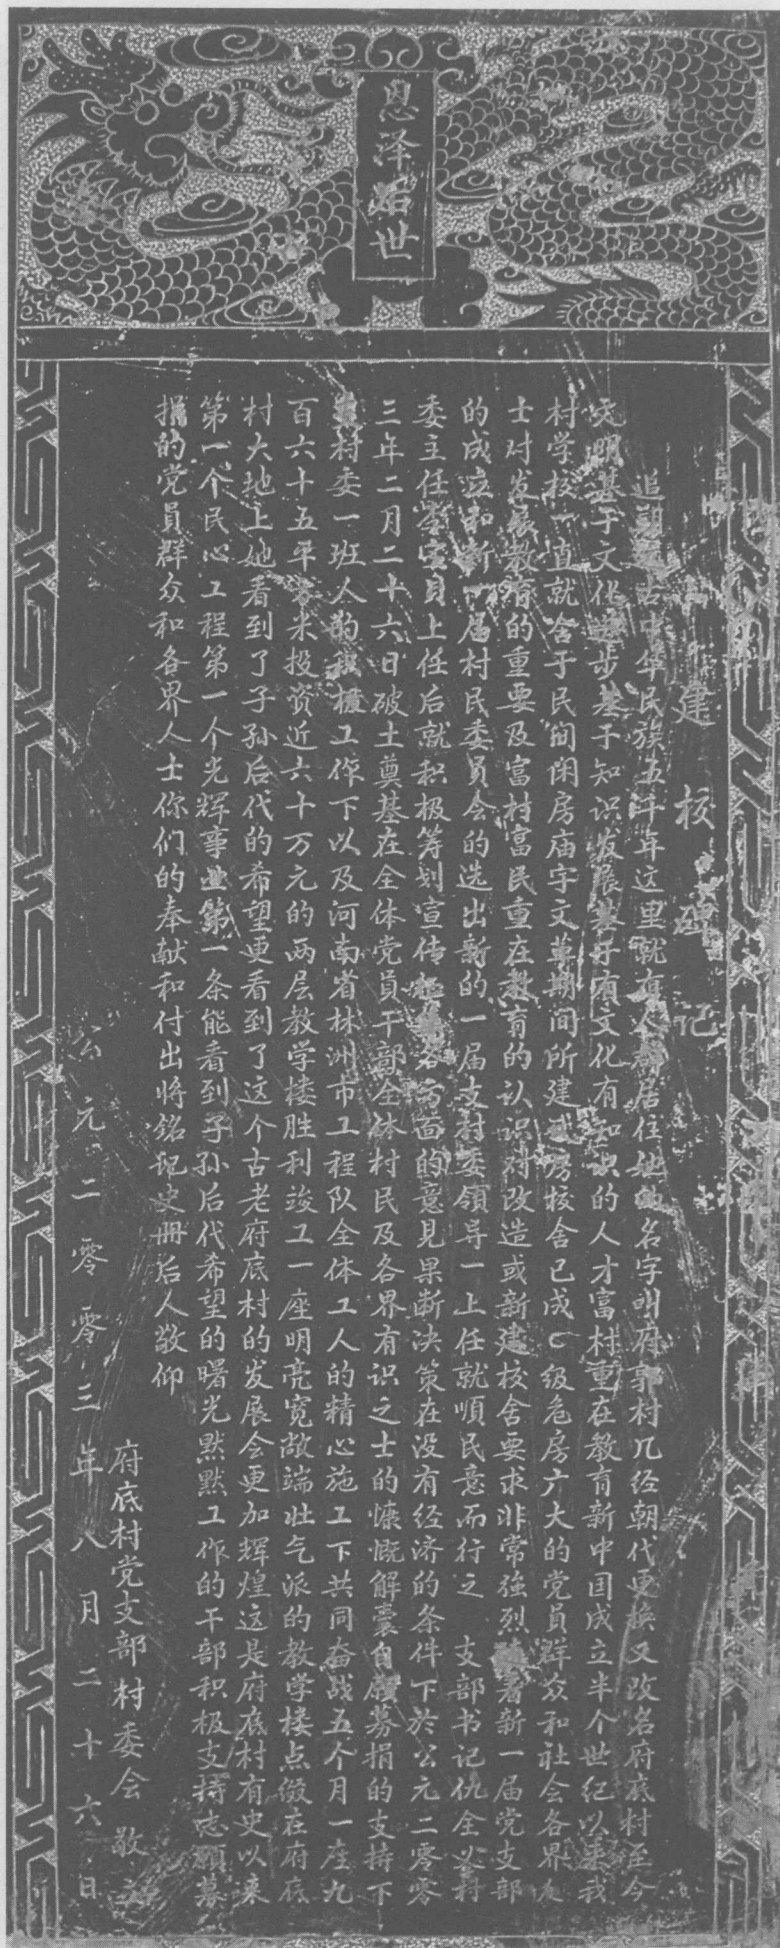 恩泽后世
建校碑记
追朔远古中华民族五千年这里就有人群居住她的名字叫府郭村几经朝代更换又改名府底村至今
文明基于文化进步基于知识发展基于有文化有知识的人才富村重在教育新中国成立半个世纪以来我
村学校一直就舍于民间闲房庙宇文革期间所建房校舍已成C级危房广大的党员群众和社会各界人
士对发展教育的重要及富村富民重在教育的认识对改造或新建校舍要求非常强烈着新一届党支部
的成立和新一届村民委员会的选出新的一届支村委领导一上任就顺民意而行之 支部书记仇全义村
委主任上任后就积极筹划宣传各方面的意见果断决策在没有经济的条件下於公元二零零
三年二月二十六日破土奠基在全体党员干部全体村民及各界有识之士的慷慨解囊自愿募捐的支持下
村委一班人的积极工作下以及河南省林洲市工程队全体工人的精心施工下共同奋战五个月一座九
百六十五平方米投资近六十万元的两层教学楼胜利竣工一座明亮宽敞端壮气派的教学楼点缀在府底
村大地上她看到了子孙后代的希望更看到了这个古老府底村的发展会更加辉煌这是府底村有史以来
第一个民心工程第一个光辉事业第一条能看到子孙后代希望的曙光默默工作的干部积极支持志愿募
捐的党员群众和各界人士你们的奉献和付出将铭记史册后人敬仰
府底村党支部村委会敬立
公元二零零三年八月二十六日